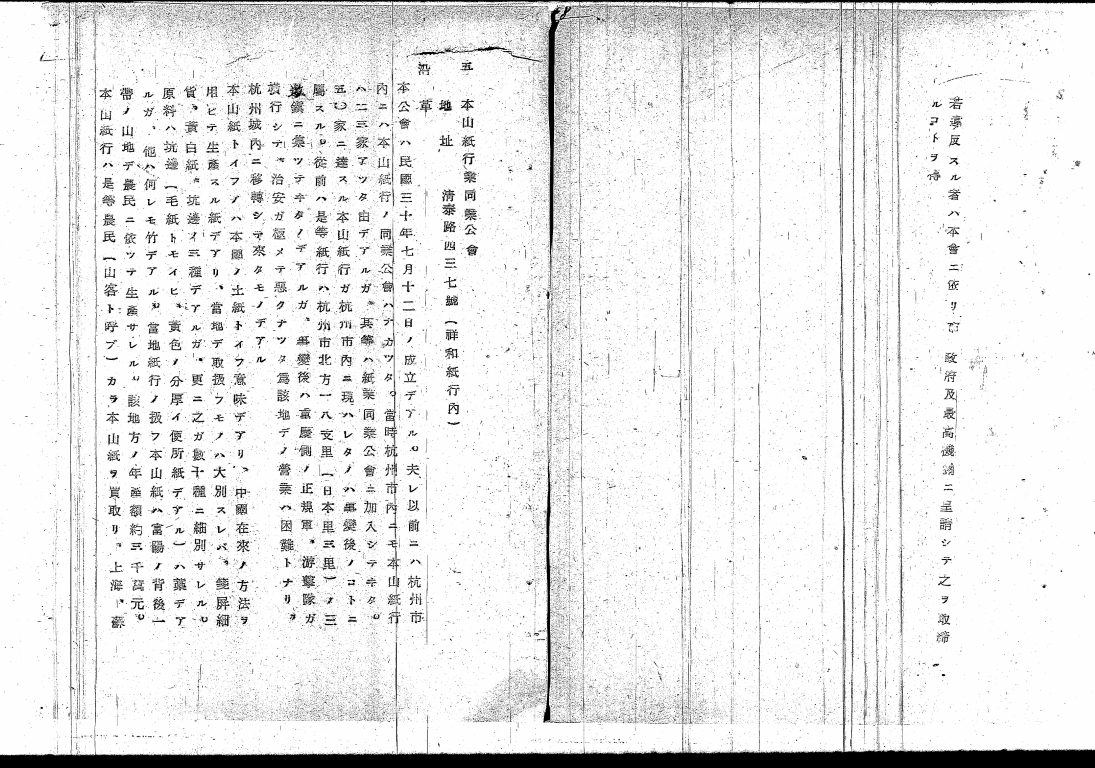 若シ違反スル者ハ本會ニ依リ 政府及最高機關ニ呈請シテ之ヲ取締
ルコトヲ得
五 本山紙行業同業公會
地址 清泰路四三七號(祥和紙行內)
沿革
本公會ハ民國三十年七月十二日ノ成立デアル。夫レ以前ニハ杭州市
內ニハ本山紙行ノ同業公會ハナカツタ。當時杭州市內ニモ本山紙行
ハ二三家アツタ由デアルガ、其等ハ紙業同業公會ニ加入シテヰタ。
五〇家ニ達スル本山紙行ガ杭州市內ニ現ハレタノハ事變後ノコトニ
屬スル。從前ハ是等紙行ハ杭州市北方一八支里(日本里三里)ノ三
鎮ニ集ツテヰタノデアルガ、事變後ハ重慶側ノ正規軍、游擊隊ガ
橫行シテ、治安ガ極メテ惡クナツタ爲該地デノ營業ハ困難トナリ、
杭州城內ニ移轉シテ來タモノデアル
本山紙トイフノハ本國ノ土紙トイフ意味デアリ、中國在來ノ方法ヲ
用ヒテ生產スル紙デアリ、當地デ取扱フモノハ大別スレバ、錢屏細
貨、黃白紙、坑邊ノ三種デアルガ、更ニ之ガ數十種ニ細別サレル。
原料ハ坑邊(毛紙トモイヒ、黃色ノ分厚イ便所紙デアル)ハ藁デア
ルガ、他ハ何レモ竹デアル。當地紙行ノ扱フ本山紙ハ富陽ノ背後一
帶ノ山地デ農民ニ依ツテ生產サレル。該地方ノ年產額約三千萬元。
本山紙行ハ是等農民(山客ト呼ブ)カラ本山紙ヲ買取リ、上海、蘇